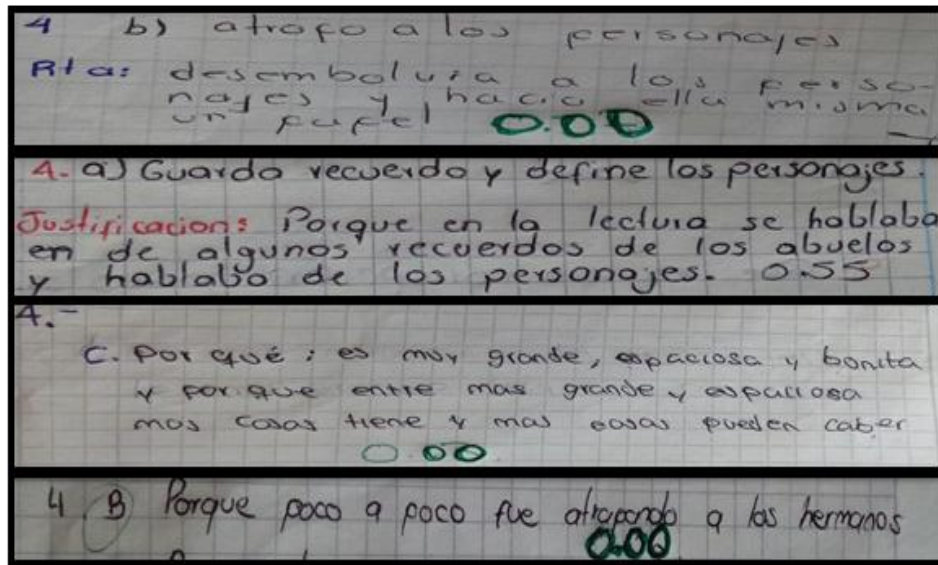 4 b) atrapo a los personajes
Rta: desembolvia a los perso-
najes y hacia ella misma
un papel 0.00
4. a) Guarda recuerdo y define los personajes.
Justificacion: Porque en la lectura se hablaba
en de algunos recuerdos de los abuelos
y hablaba de los personajes. 0.55
4.-
C. Por qué: es muy grande, espaciosa y bonita
y por que entre mas grande y espaciosa
mas cosas tiene y mas cosas pueden caber
0.00
4 B Porque poco a poco fue atrapando a los hermanos
0.00